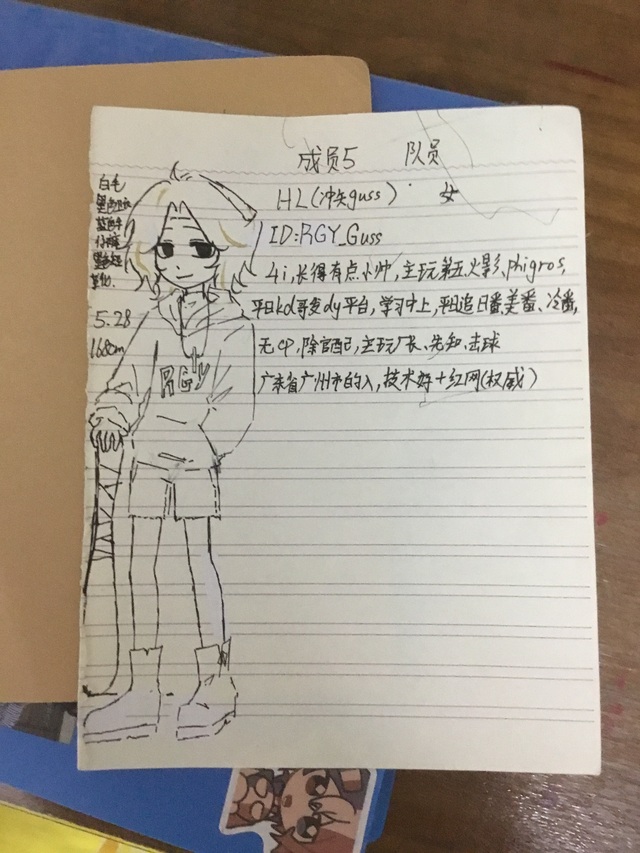 成员5 队员
HL(冲矢guss) 女
ID:RGY_Guss
4i,长得有点小帅,主玩第五、火影、phigros,
平日kd哥发dy平台,学习中上,平日追日番、美番、冷番,
无CP,除官配,主玩厂长、先知、击球
广东省广州市的人,技术好+红网(权威)
白毛
5.28
168cm
RGY